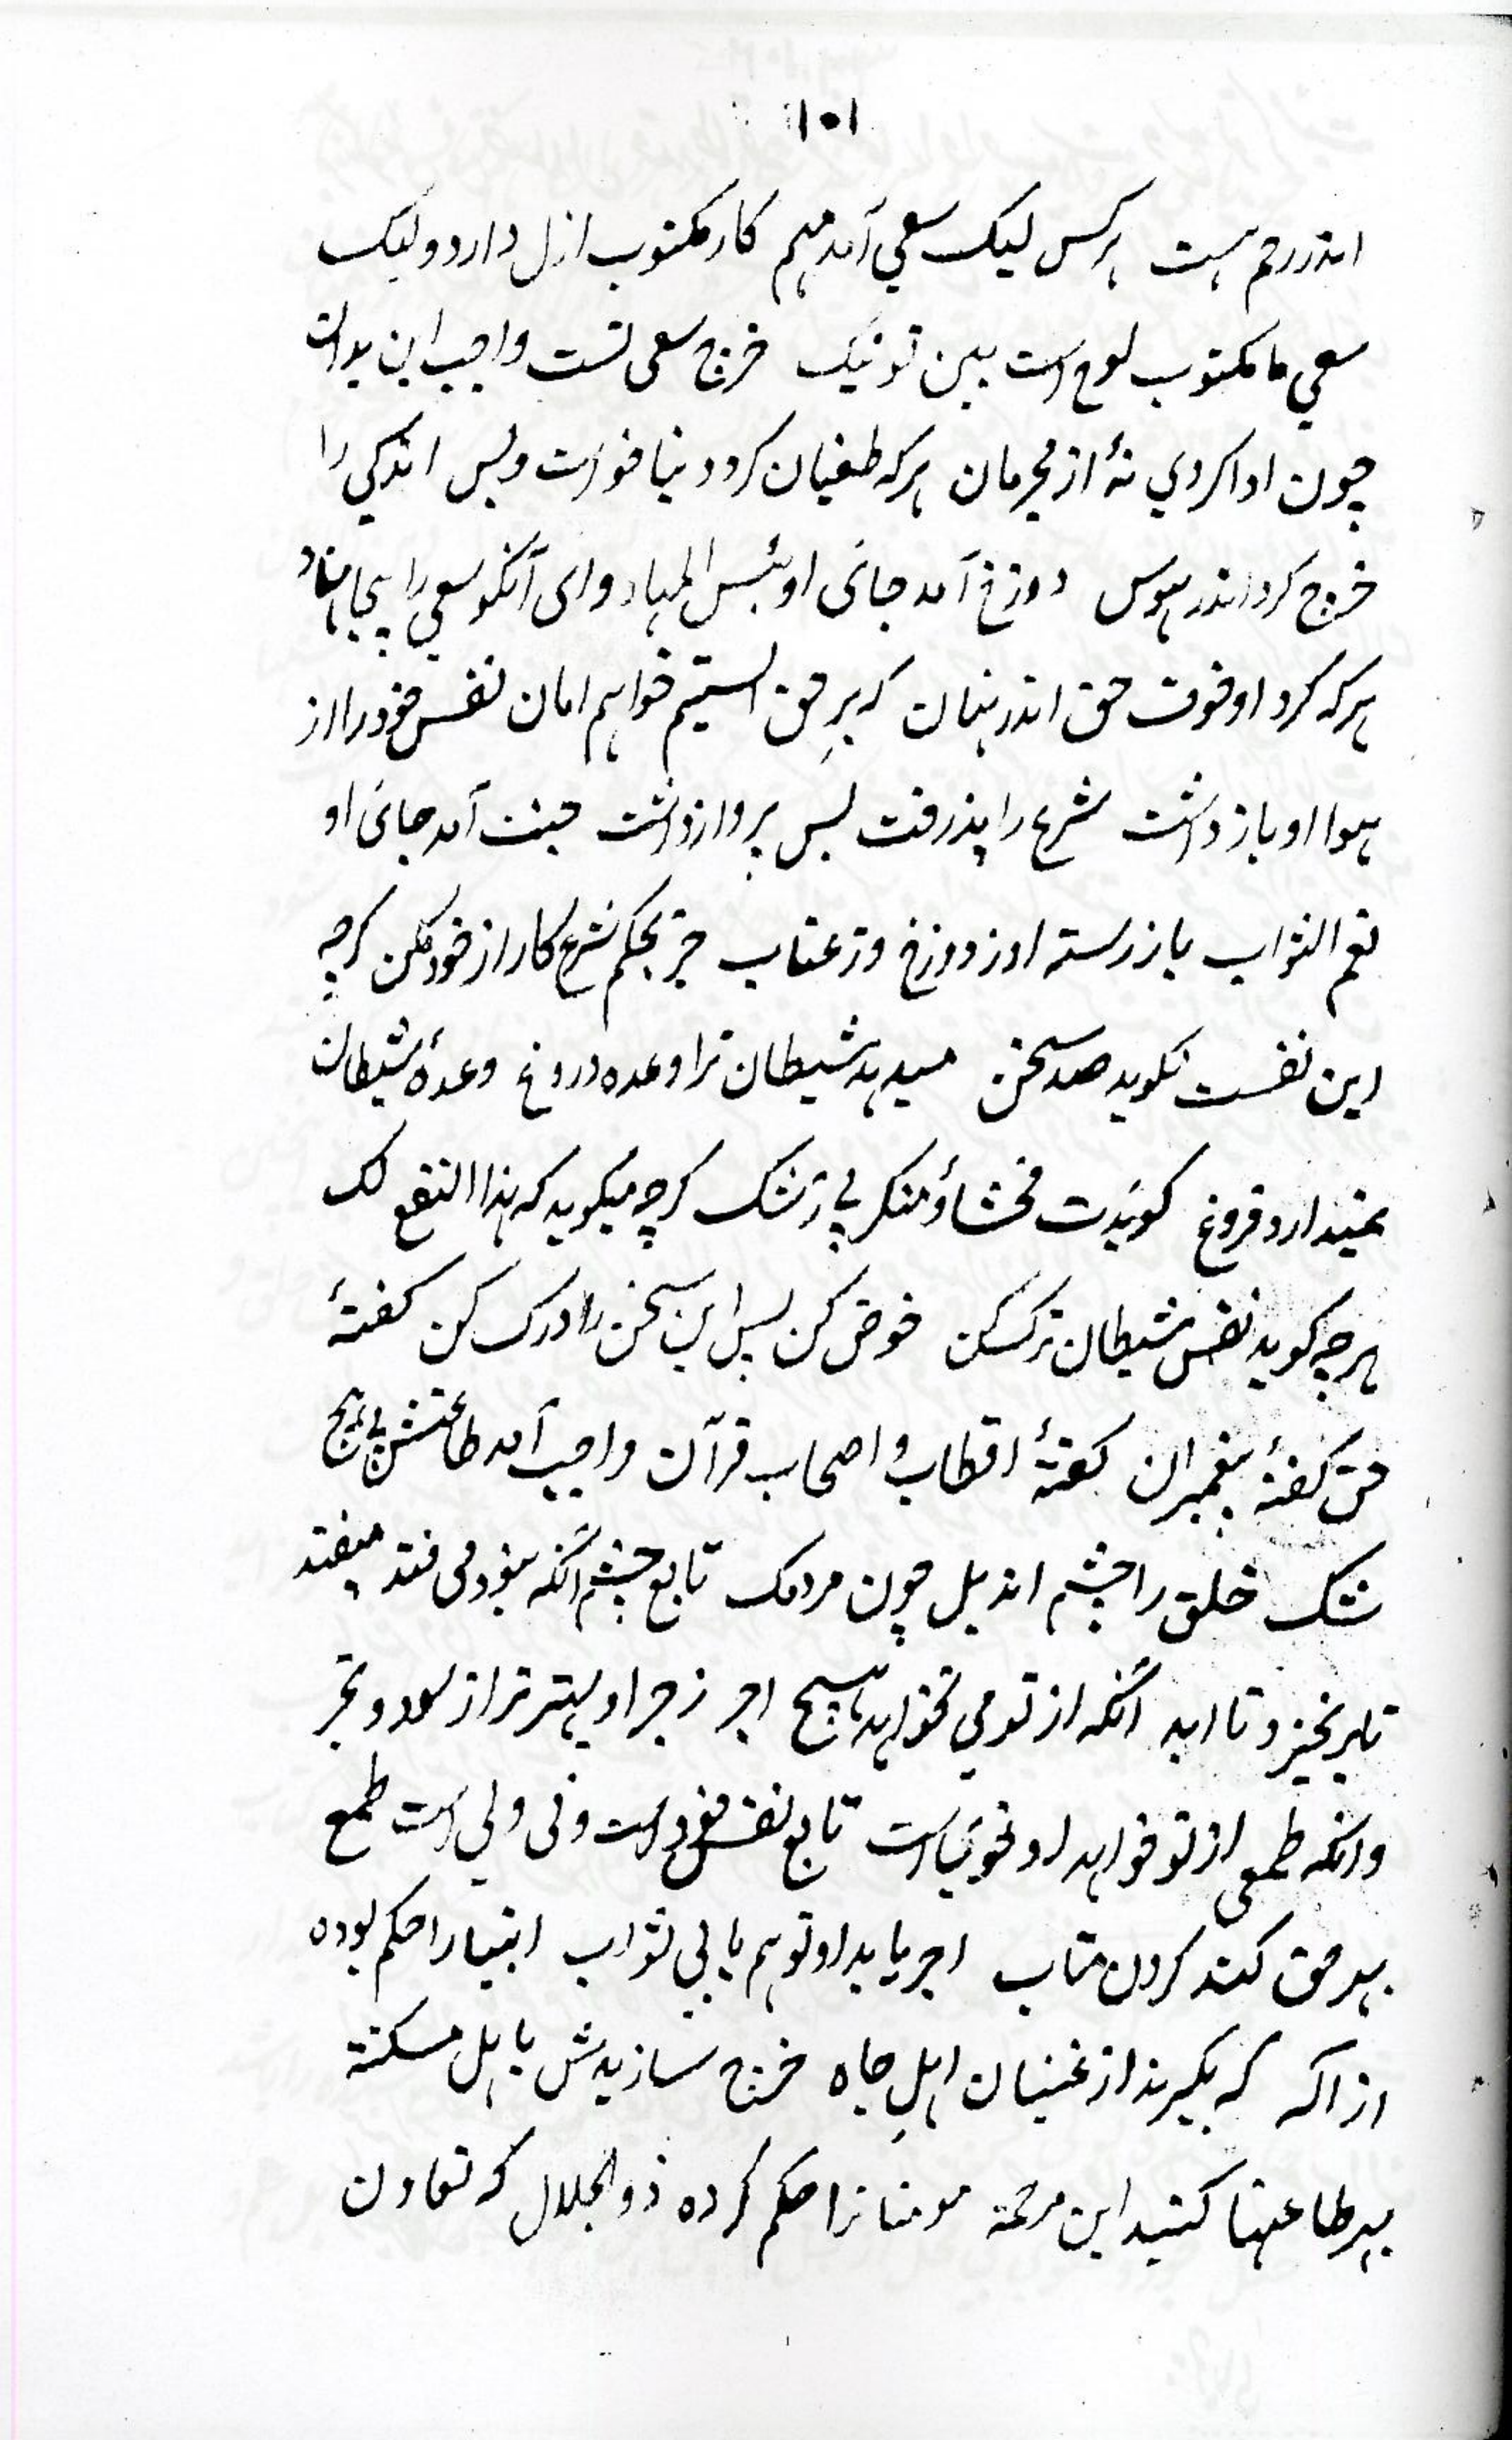 ۱۰۱
اندر رحم هست هرکس لیک سعی آمد مهم کار مکتوب ازل دارد ولیک
سعی ما مکتوب لوح است ببین تو نیک خرج سعی تست واجب این بدان
چون ادا کردی نهٔ از مجرمان هرکه طغیان کرد و دنیا خواست و بس اندکی را
خرج کرد اندر هوس دوزخ آمد جائی او بئس المهاد وای آنکو سعی را بیجا نهاد
هرکه کرد او خوف حق اندر نهان که بر حق ایستیم خواهم امان نفس خود را از
هوا او باز داشت شرع را پذرفت پس پرواز داشت جنت آمد جائی او
نعم الثواب باز رسته او ز دوزخ وز عتاب جز بحکم شرع کار از خود مکن گرچه
این نفست نگوید صد سخن میدهد شیطان ترا وعده دروغ وعدهٔ شیطان
نمیدارد فروغ گویدت فحشاؤ منکر بی ز شک گرچه میگوید که هذا النفع لک
هرچه گوید نفس شیطان ترک کن خوض کن پس این سخن را درک کن گفتهٔ
حق گفتهٔ پیغمبران گفتهٔ اقطاب و اصحاب قرآن واجب آمد طاعتش بی هیچ
شک خلق را چشم اند یل چون مردمک تابع چشم آنکه بخود می فتد میفتد
تا بر نخیزد تا ابد آنکه از تو می نخواهد هیچ اجر زجر او بهتر ترا از سود و تجر
وانکه طمعی از تو خواهد او نحوی است تابع نفس خود است و نی ولی است طمع
بهر حق کند کردن متاب اجر یابد او تو هم یابی ثواب انبیا را حکم بوده
از اله که بگیرند از غنیان اهل جاه خرج سازیدش با اهل مسکنة
بهر طاعتها کنید این مرحمة مومنانرا حکم کرده ذوالجلال که تعاون